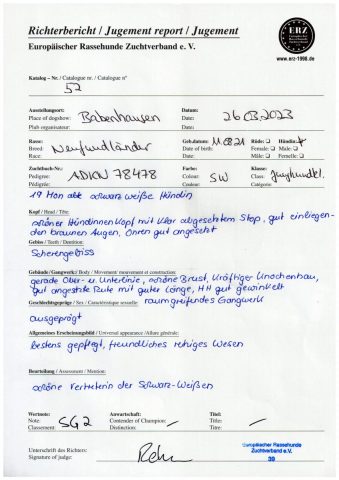 Richterbericht / Jugement report / Jugement
Europäischer Rassehunde Zuchtverband e. V.
ERZ
www.erz-1998.de
Katalog – Nr. / Catalogue nr. / Catalogue n°
52
Ausstellungsort: Datum:
Place of dogshow: Babenhausen Date: 26.03.2023
Plub organisateur: Date:
Rasse: Geb.datum: 11.08.21 Rüde: Hündin:
Breed Neufundländer Date of birth: Female: Male:
Race: Date: Mâle: Femelle:
Zuchtbuch-Nr.: Farbe: Klasse:
Pedigree: ADION 78478 Colour: SW Class. Junghundkl.
Pédigrée: Colour: Catégorie:
19 Mon alte schwarz weiße Hündin
Kopf / Head / Tête:
schöner Hündinnenkopf mit klar abgesetztem Stop, gut einliegen-
den braunen Augen, Ohren gut angesetzt
Gebiss / Teeth / Dentition:
Scherengebiss
Gebäude/Gangwerk: / Body / Movement / mouvement et construction:
gerade Ober- u. Unterlinie, schöne Brust, kräftiger Knochenbau,
gut angesetzte Rute mit guter Länge, HH gut gewinkelt
Geschlechtsgepräge / Sex / Caractéristique sexuelle: raumgreifendes Gangwerk
ausgeprägt
Allgemeines Erscheinungsbild / Universal appearance / Allure générale:
bestens gepflegt, freundliches ruhiges Wesen
Beurteilung / Assessment / Mention:
schöne Vertreterin der Schwarz-Weißen
Wertnote: Anwartschaft: Titel:
Note: SG2 Contender of Champion: Titre:
Classement: Distinction: Titre:
Unterschrift des Richters:
Signature of judge:
Europäischer Rassehunde
Zuchtverband e.V.
39